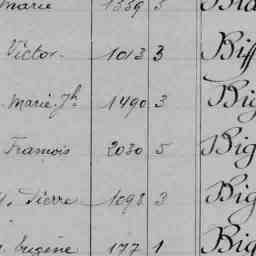 Marie 1339 3
Victor. 1013 3 Biff
Marie Jh 1490 3 Big
François 2030 5 Big
Pierre 1098 3 Big
Eugène 177 1 Big